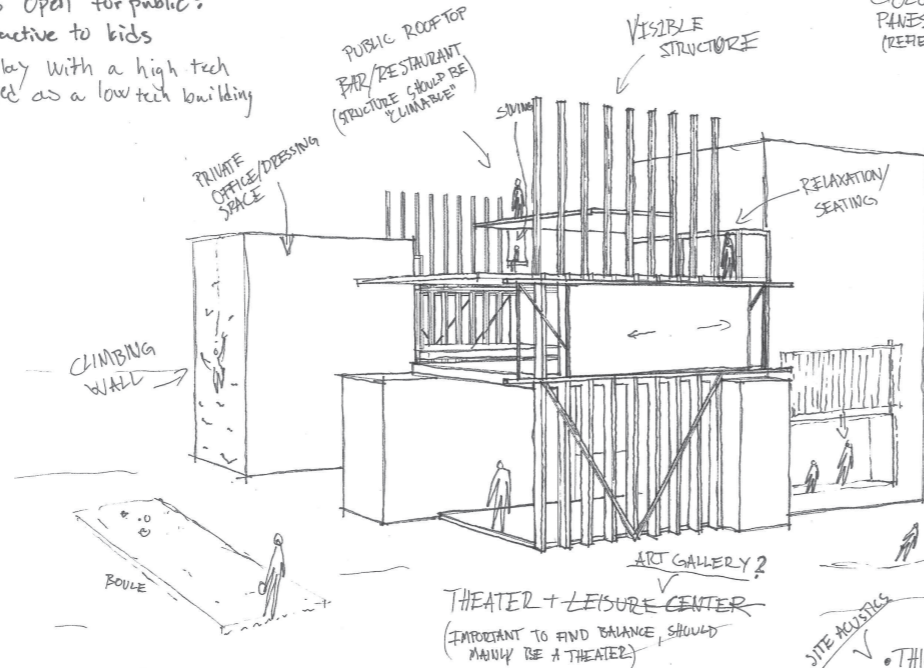 open for public?
active to kids
lay with a high tech
ed as a low tech building
PUBLIC ROOFTOP
BAR/RESTAURANT
(STRUCTURE SHOULD BE
"CLIMABLE")
VISIBLE
STRUCTURE
PANES
SWING
PRIVATE
OFFICE/DRESSING
SPACE
RELAXATION/
SEATING
CLIMBING
WALL
BOULE
ART GALLERY?
THEATER + LEISURE CENTER
(IMPORTANT TO FIND BALANCE, SHOULD
MAINLY BE A THEATER)
SITE ACUSTICS
• TH